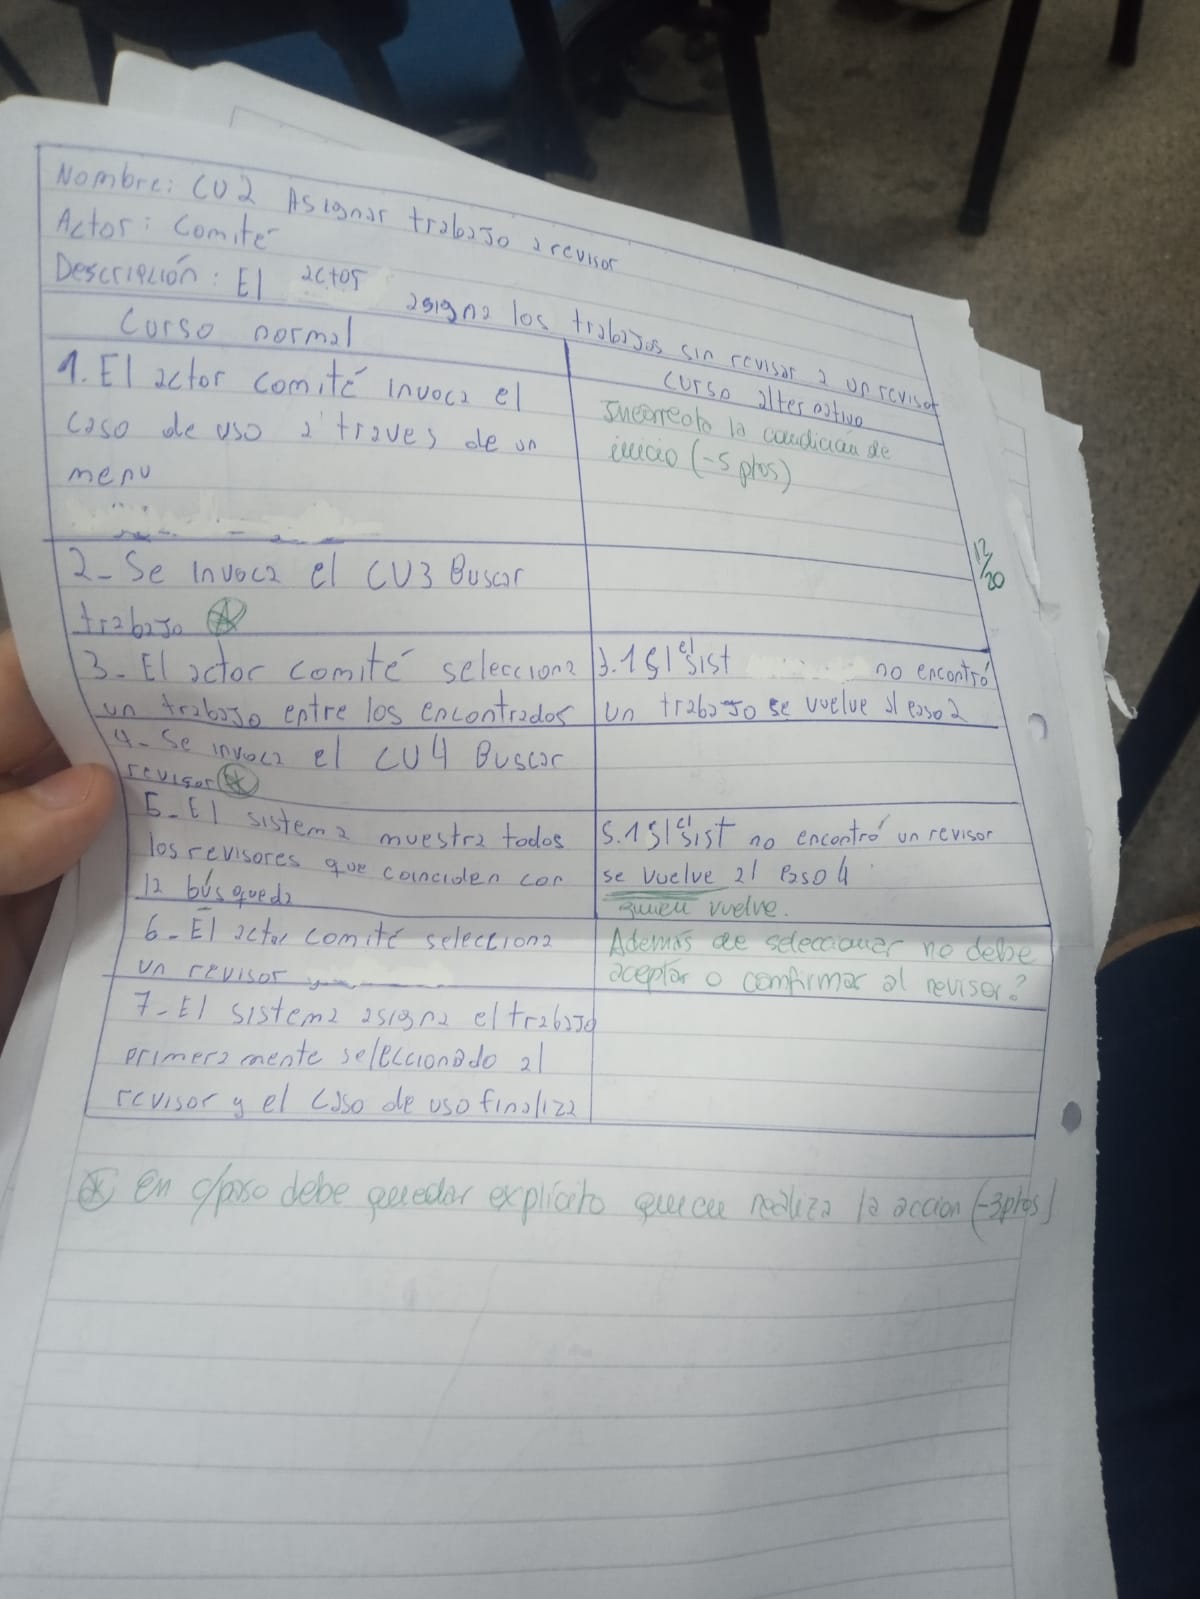 Nombre: CU2 Asignar trabajo a revisor
Actor: Comité
Descripción: El actor asigna los trabajos sin revisar a un revisor
Curso normal
curso alternativo
1. El actor comité invoca el
caso de uso a traves de un
menu
Incorrecto la condición de
inicio (-5 ptos)
12/20
2- Se invoca el CU3 Buscar
trabajo *
3- El actor comité selecciona
un trabajo entre los encontrados
3.1 Si el sist no encontró
un trabajo se vuelve al paso 2
4- Se invoca el CU4 Buscar
revisor *
5- El sistema muestra todos
los revisores que coinciden con
la búsqueda
5.1 Si el sist no encontró un revisor
se vuelve al paso 4
quien vuelve.
6- El actor comité selecciona
un revisor
Además de seleccionar no debe
aceptar o confirmar al revisor?
7- El sistema asigna el trabajo
primeramente seleccionado al
revisor y el caso de uso finaliza
* En c/paso debe quedar explícito quien realiza la accion (-3ptos)